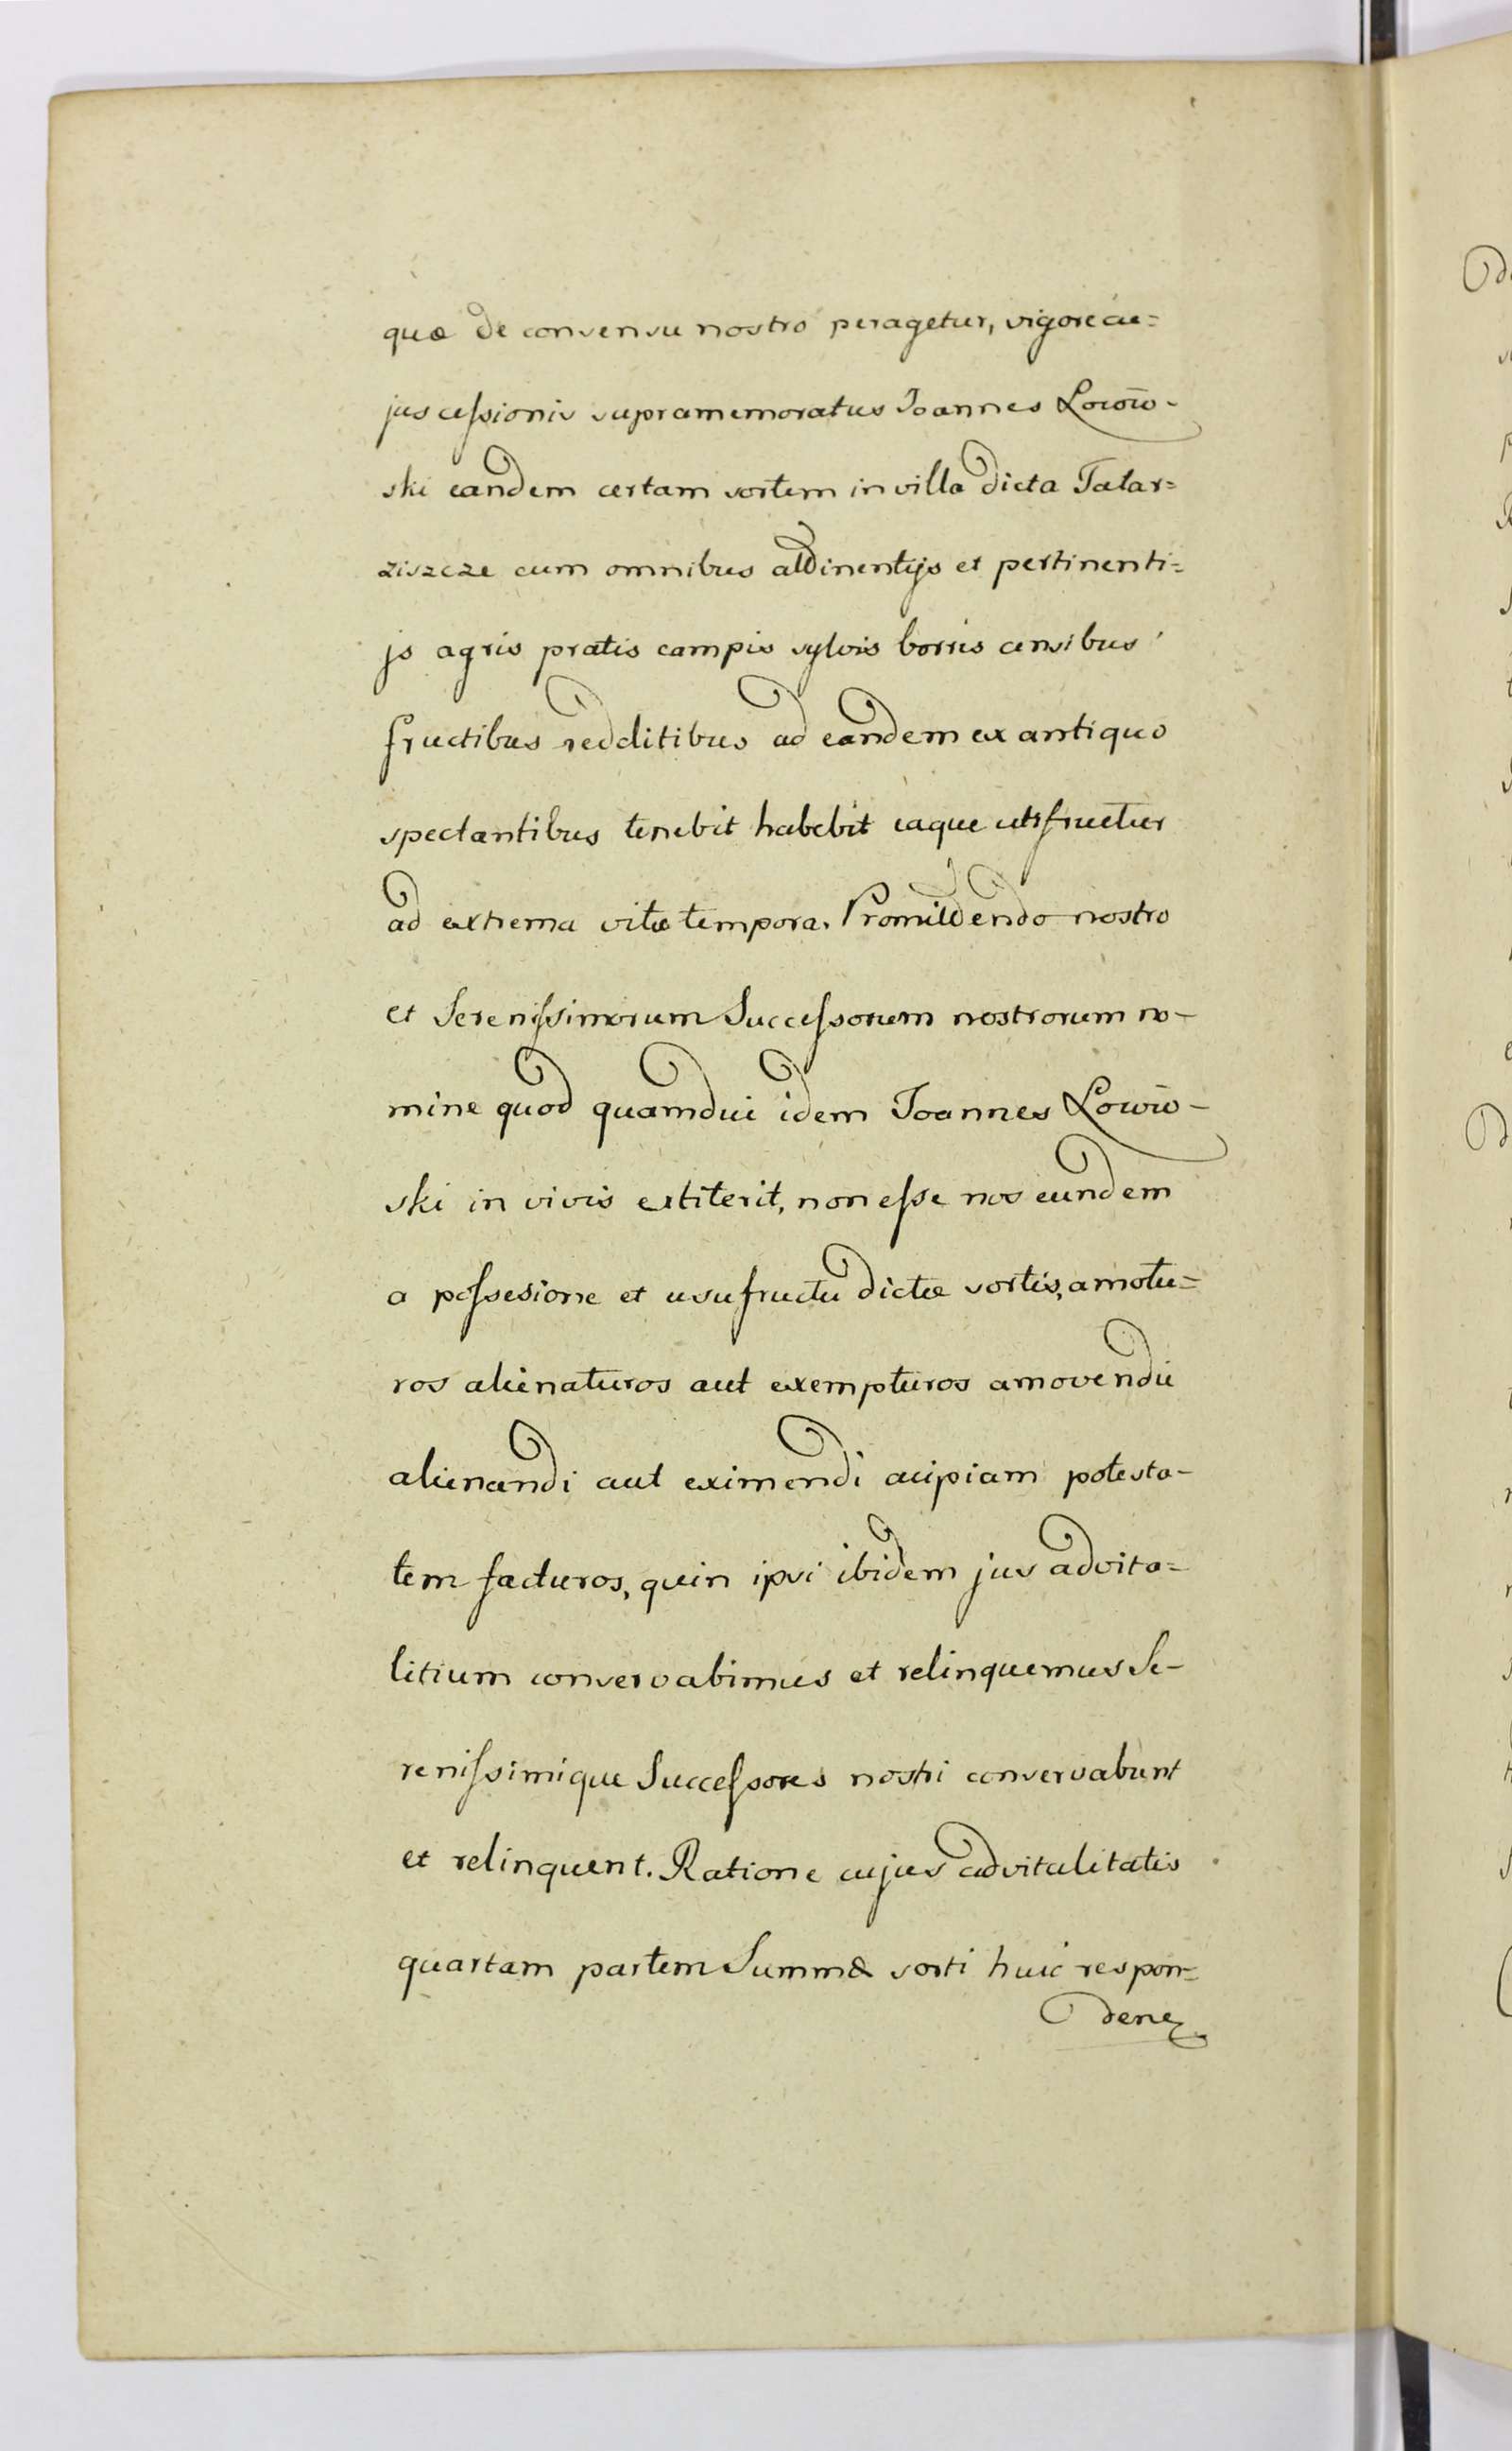 quæ de consensu nostro peragetur, vigore cu=
jus cessionis supramemoratus Joannes Lowow-
ski eandem certam sortem in villa dicta Tatar=
ziszcze cum omnibus attinentijs et pertinenti=
js agris pratis campis sylvis borris censibus
fructibus redditibus ad eandem ex antiquo
spectantibus tenebit habebit eaque utifruetur
ad extrema vitæ tempora. Promittendo nostro
et Serenissimorum Successorum nostrorum no-
mine quod quamdui idem Joannes
ski in vivis extiterit, non esse nos eundem
a possesione et usufructu dictæ sortis, amotu=
ros alienaturos aut exempturos amovendii
alienandi aut eximendi cuipiam potesta-
tem facturos, quin ipsi ibidem jus advita=
litium conservabimus et relinquemus Se-
renissimique Successores nostri conservabunt
et relinquent. Ratione cujus advitalitatis
quartam partem Summæ sorti huic respon=